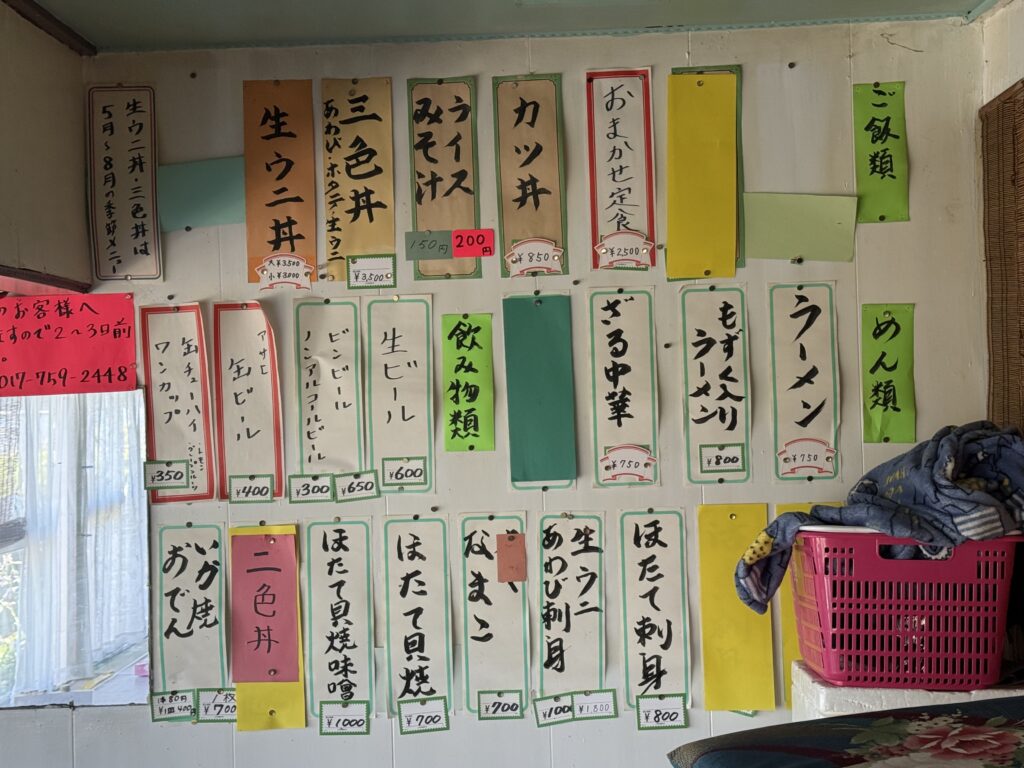 ご飯類
おまかせ定食
¥2,500
カツ丼
¥850
ライス
みそ汁
200円
150円
三色丼
あわび・ホタテ・生ウニ
¥3,500
生ウニ丼
大¥3,500
小¥3,000
生ウニ丼・三色丼は
5月〜8月の季節メニュー
めん類
ラーメン
¥750
もずく入り
ラーメン
¥800
ざる中華
¥750
飲み物類
生ビール
¥600
ビンビール
ノンアルコールビール
¥650
¥300
アサヒ
缶ビール
¥400
缶チューハイ
レモン
ワンカップ
¥350
のお客様へ
ますので2〜3日前
017-759-2448
ほたて刺身
¥800
生ウニ
あわび刺身
¥1,800
¥100
なまこ
¥700
ほたて貝焼
¥700
ほたて貝焼味噌
¥1000
二色丼
いが焼
おでん
枚
¥700
1本80円
1皿400円